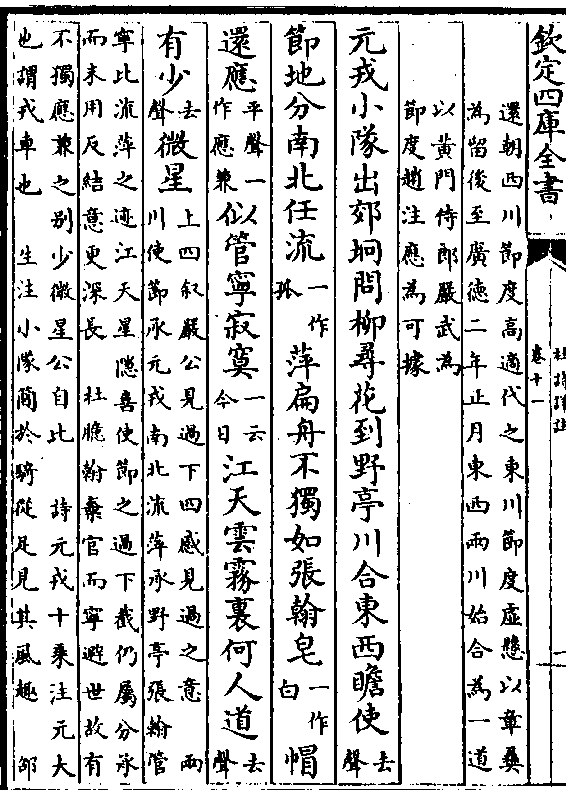 欽定四庫全書
杜詩詳註
卷十一
還朝西川節度高適代之東川節度虛懸以章彝
為留後至廣德二年正月東西兩川始合為一道
以黃門侍郎嚴武為
節度趙注應為可據
元戎小隊出郊坰問柳尋花到野亭川合東西瞻使去聲
節地分南北任流一作孤萍扁舟不獨如張翰皂一作白帽
還應平聲一作應兼似管寧寂寞一云今日江天雲霧裏何人道去聲
有少去聲微星上四叙嚴公見過下四感見過之意 兩
川使節承元戎南北流萍承野亭張翰管
寧比流萍之迹江天星隱喜使節之過下截仍屬分承
而末用反結意更深長 杜臆翰棄官而寧避世故有
不獨應兼之别少微星公自比 詩元戎十乘注元大
也謂戎車也 生注小隊簡於騎從足見其風趣 邵